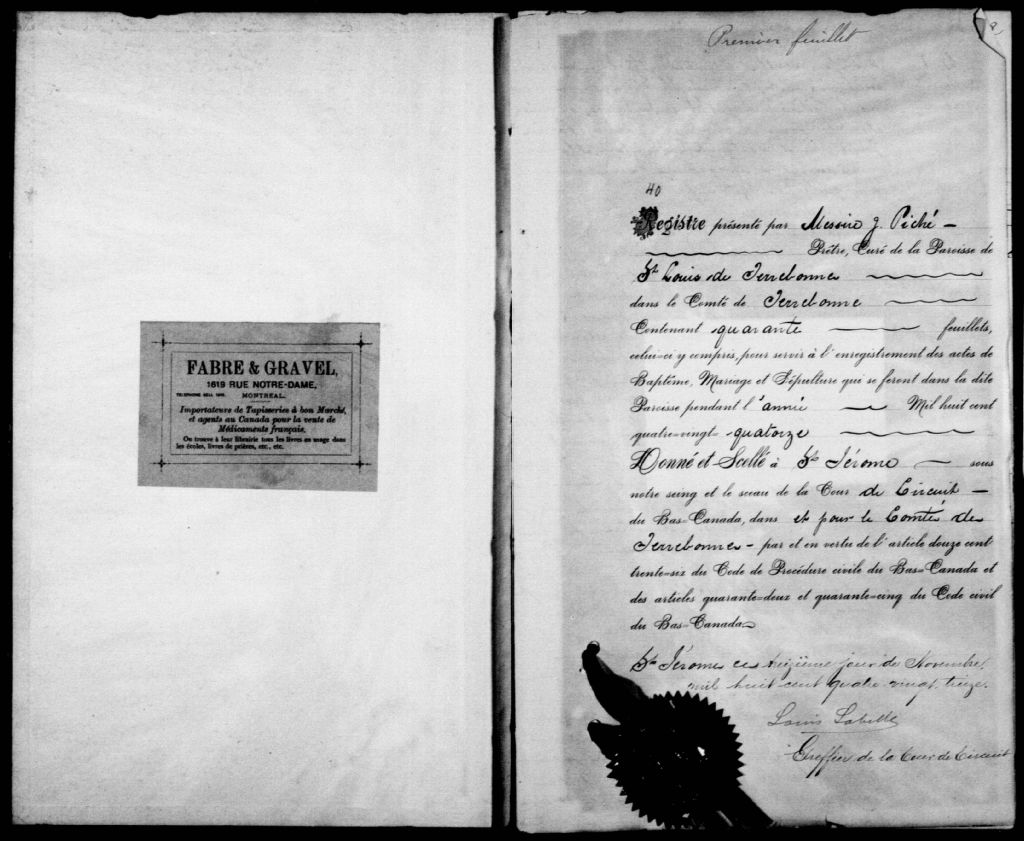 FABRE & GRAVEL,
1619 RUE NOTRE-DAME,
MONTREAL.
Importateurs de Tapisseries à bon Marché,
et agents au Canada pour la vente de
Médicaments français.
On trouve à leur librairie tous les livres en usage dans
les écoles, livres de prières, etc., etc.
Premier feuillet
40
Registre présenté par Messire J. Piché
Prêtre, Curé de la Paroisse de
St Louis de Terrebonne
dans le Comté de Terrebonne
Contenant quarante feuillets,
celui-ci y compris, pour servir à l'enregistrement des actes de
Baptême, Mariage et Sépulture qui se feront dans la dite
Paroisse pendant l'année Mil huit cent
quatre-vingt-quatorze
Donné et Scellé à St Jérome sous
notre seing et le sceau de la Cour de Circuit
du Bas-Canada, dans et pour le Comté de
Terrebonne - par et en vertu de l'article douze cent
trente-six du Code de Procédure civile du Bas-Canada et
des articles quarante-deux et quarante-cinq du Code civil
du Bas-Canada
St Jérome ce treizième jour de Novembre
mil huit cent quatre vingt treize.
Louis Labelle
Greffier de la Cour de Circuit